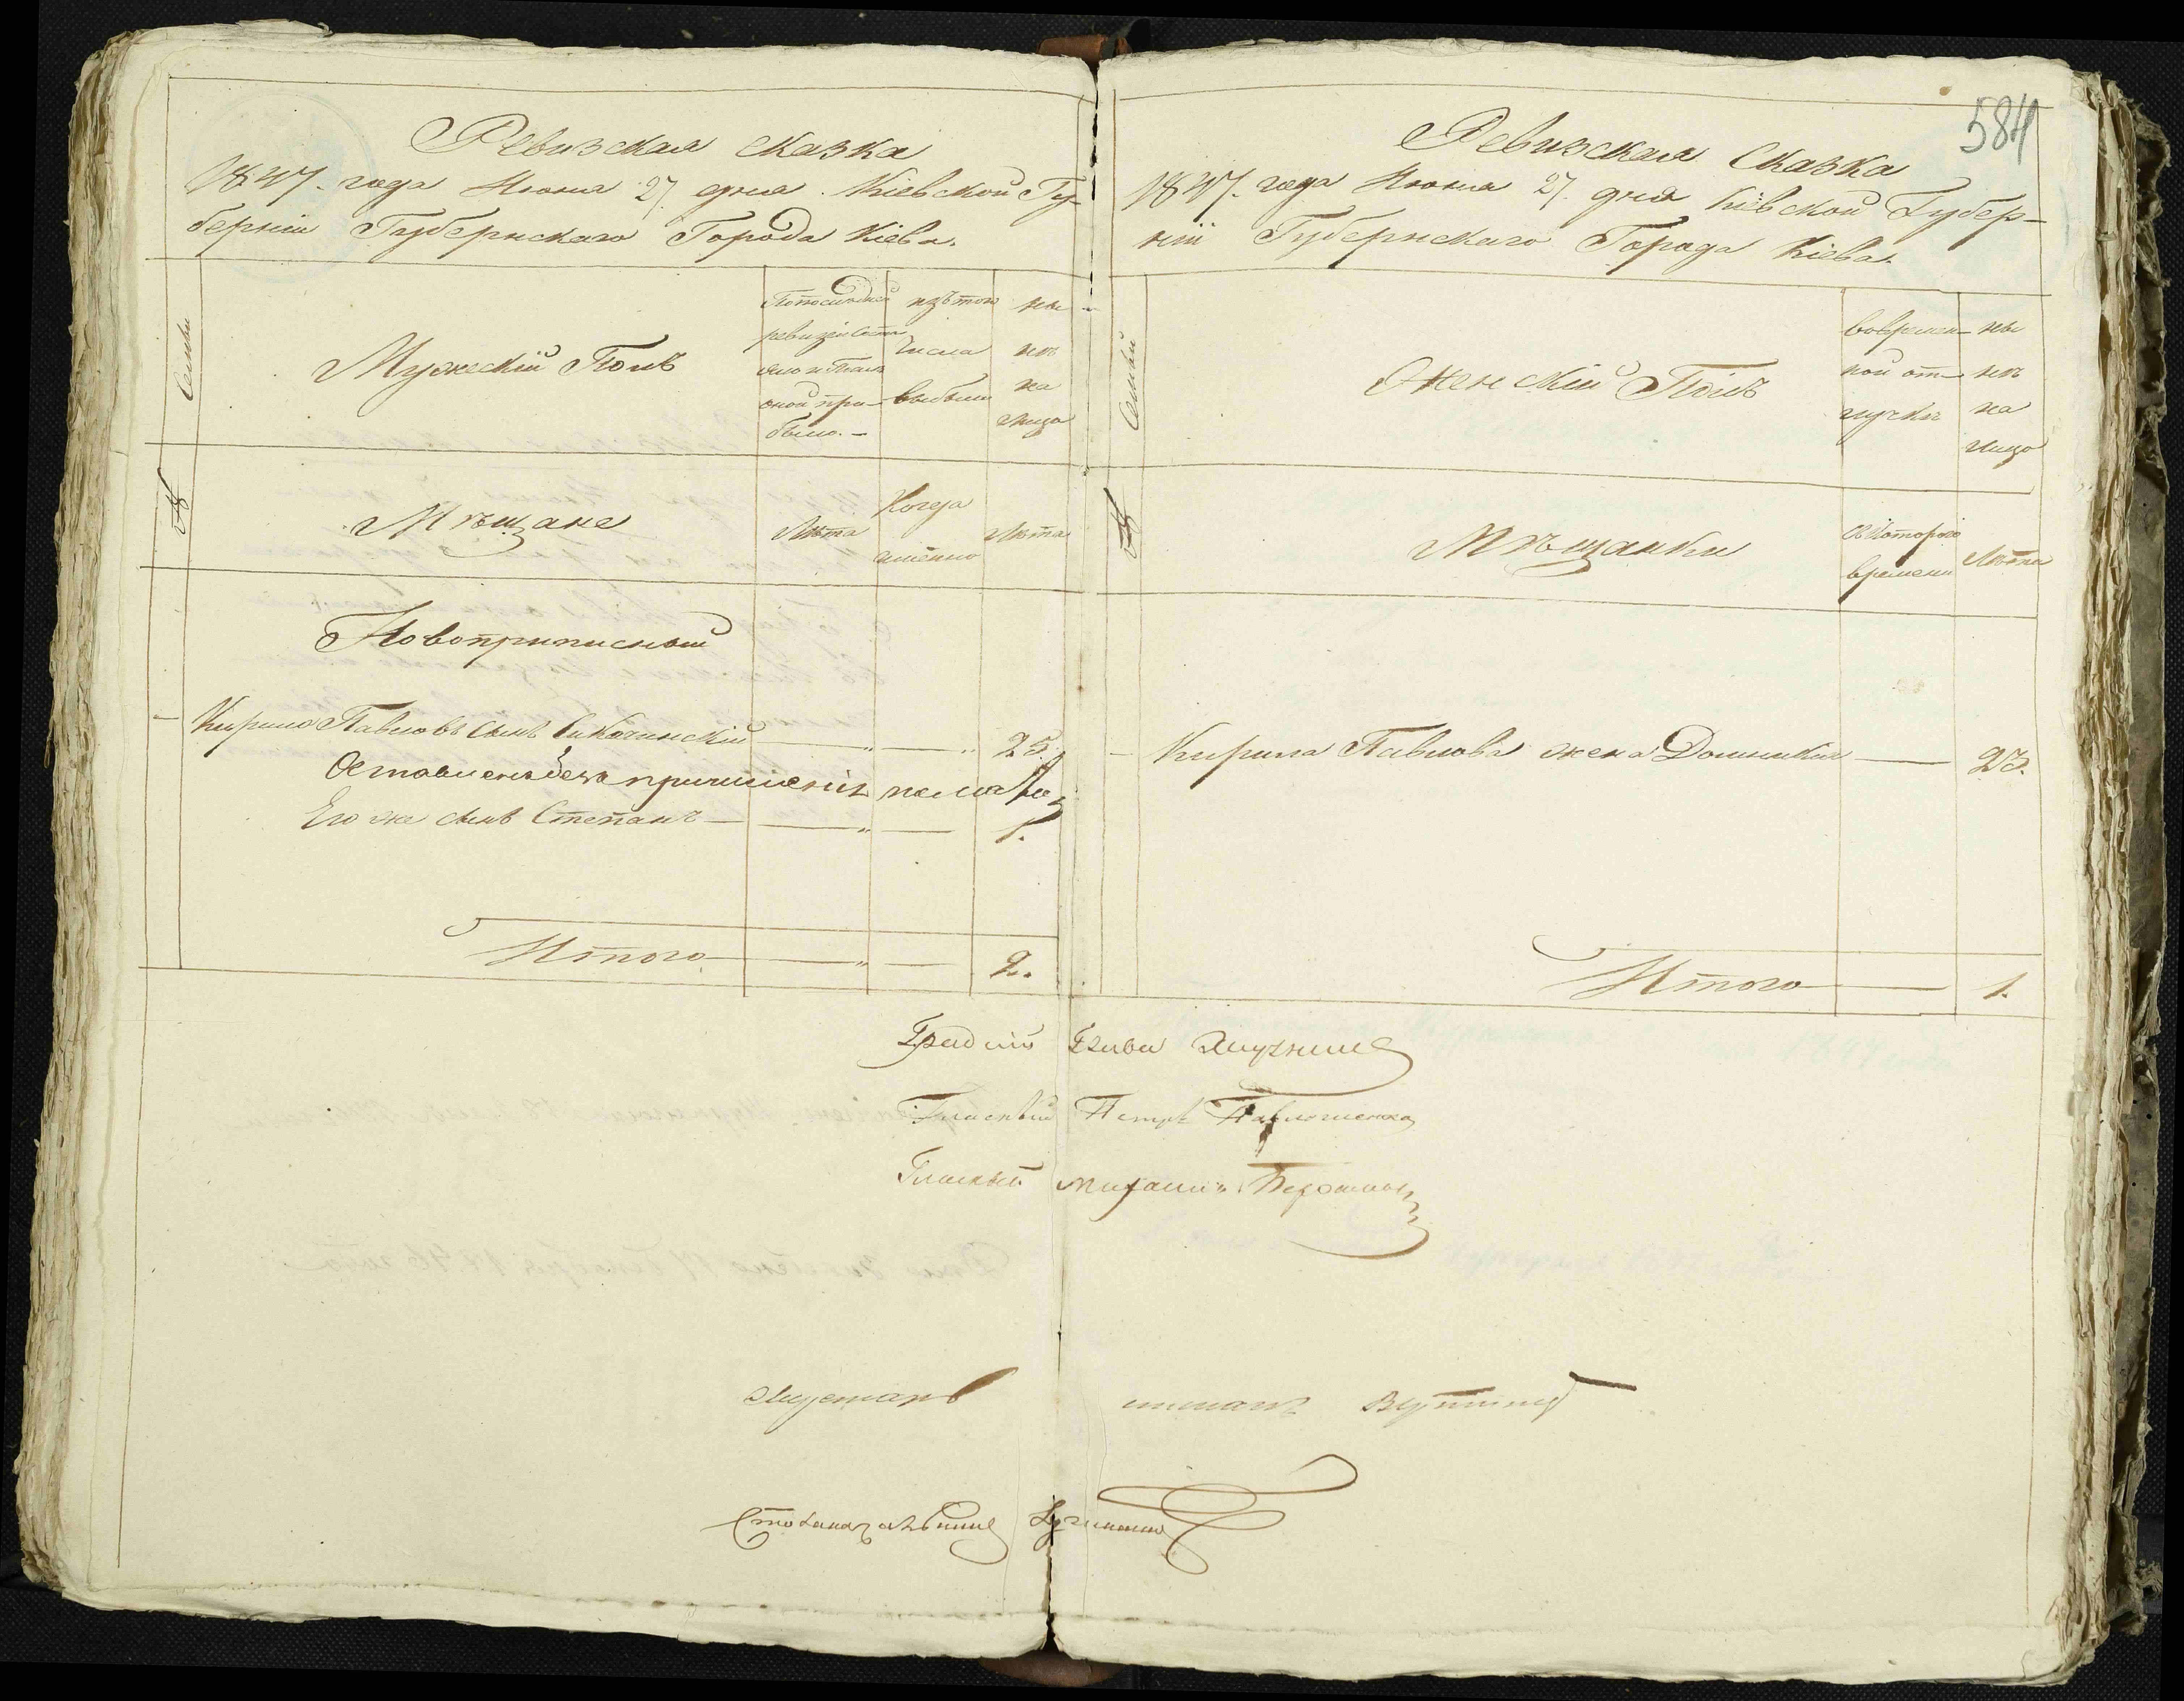 Ревизская сказка
1847. года Июня 27. дня Кіевской Гу-
берніи Губернскаго Города Кіева.
Семьи
Мужескій Полъ
По последней ревизіи состояло и после оной при- было.-
изъ того числа выбыли
ны- не на лицо
№
Мѣщане
Лѣта
Когда именно
Лѣта
Новоприписный
Кирило Павловъ сынъ
25.
Оставленъ безъ причисленія
Его же сынъ Степанъ
1.
Итого
2.
584
Ревизская Сказка
1847. года Июня 27. дня Кіевской Губер-
ніи Губернскаго Города Кіева.
Семьи
Женскій Полъ
во времен- ной от- лучки
ны не на лицо
№
Мѣщанки
Съ котораго времени
Лѣта
Кирила Павлова жена Домникия
23.
Итого
1.
Градскій Глава
Гласный Петръ
Гласный Михаилъ